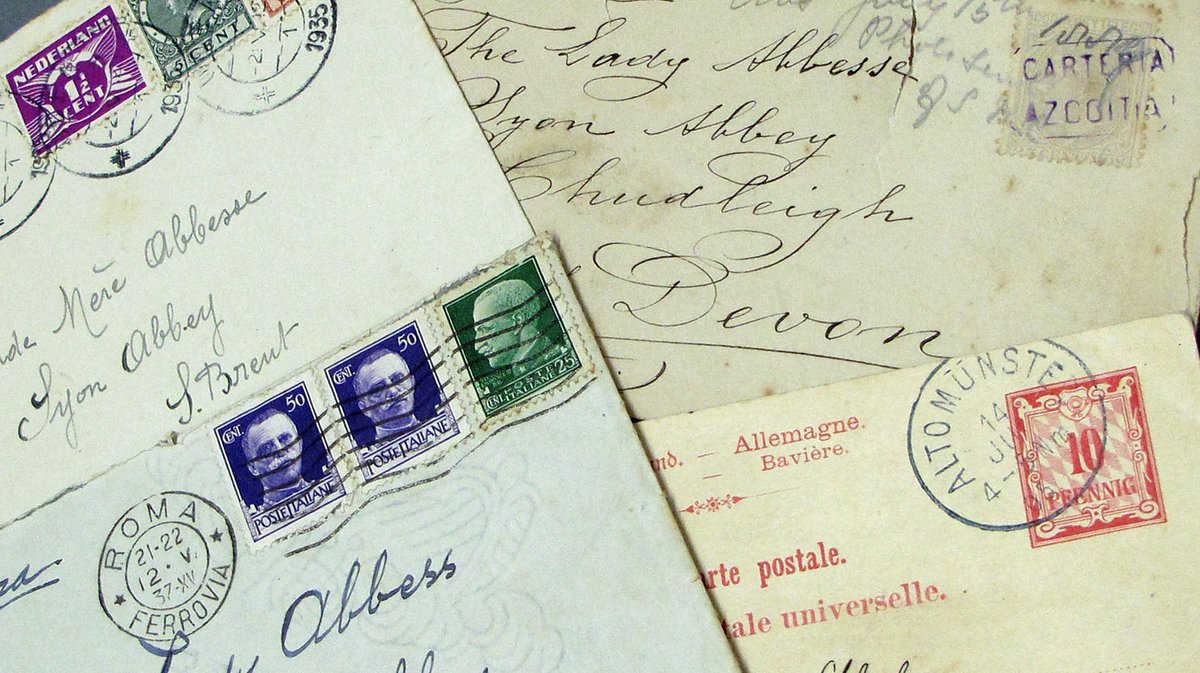 NEDERLAND
1½
CENT
CENT
1935
193
nde Mèrè Abbesse
Syon Abbey
S. Brent
The Lady Abbesse
Syon Abbey
Chudleigh
Devon
CARTERIA
AZCOITIA
CENT. 50
POSTE ITALIANE
CENT. 50
POSTE ITALIANE
CENT 25
POSTE ITALIANE
ROMA
21-22
12 · V.
37-XV
FERROVIA
Abbess
nd. — Allemagne.
Bavière.
ALTOMÜNSTE
14
4-5 Nm
10
PFENNIG
rte postale.
tale universelle.